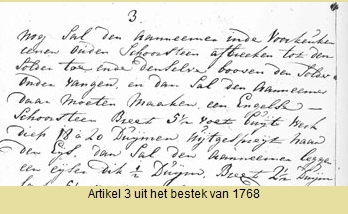 3
nog Sal den aanneemer inde voorkeuken
eenen ouden Schoorsteen afbreeken tot den
Solder toe ende denselve booven den Solder
onder vangen, en dan Sal den aanneemer
daar moeten maaken een Engelse
Schoorsteen Breet 5½ voet
diep 18 à 20 Duijmen uijtgespreijt naar
den Eijs. dan Sal den aanneemer legge
een dik ½ Duijm, Breet 2½ Duijm
Artikel 3 uit het bestek van 1768